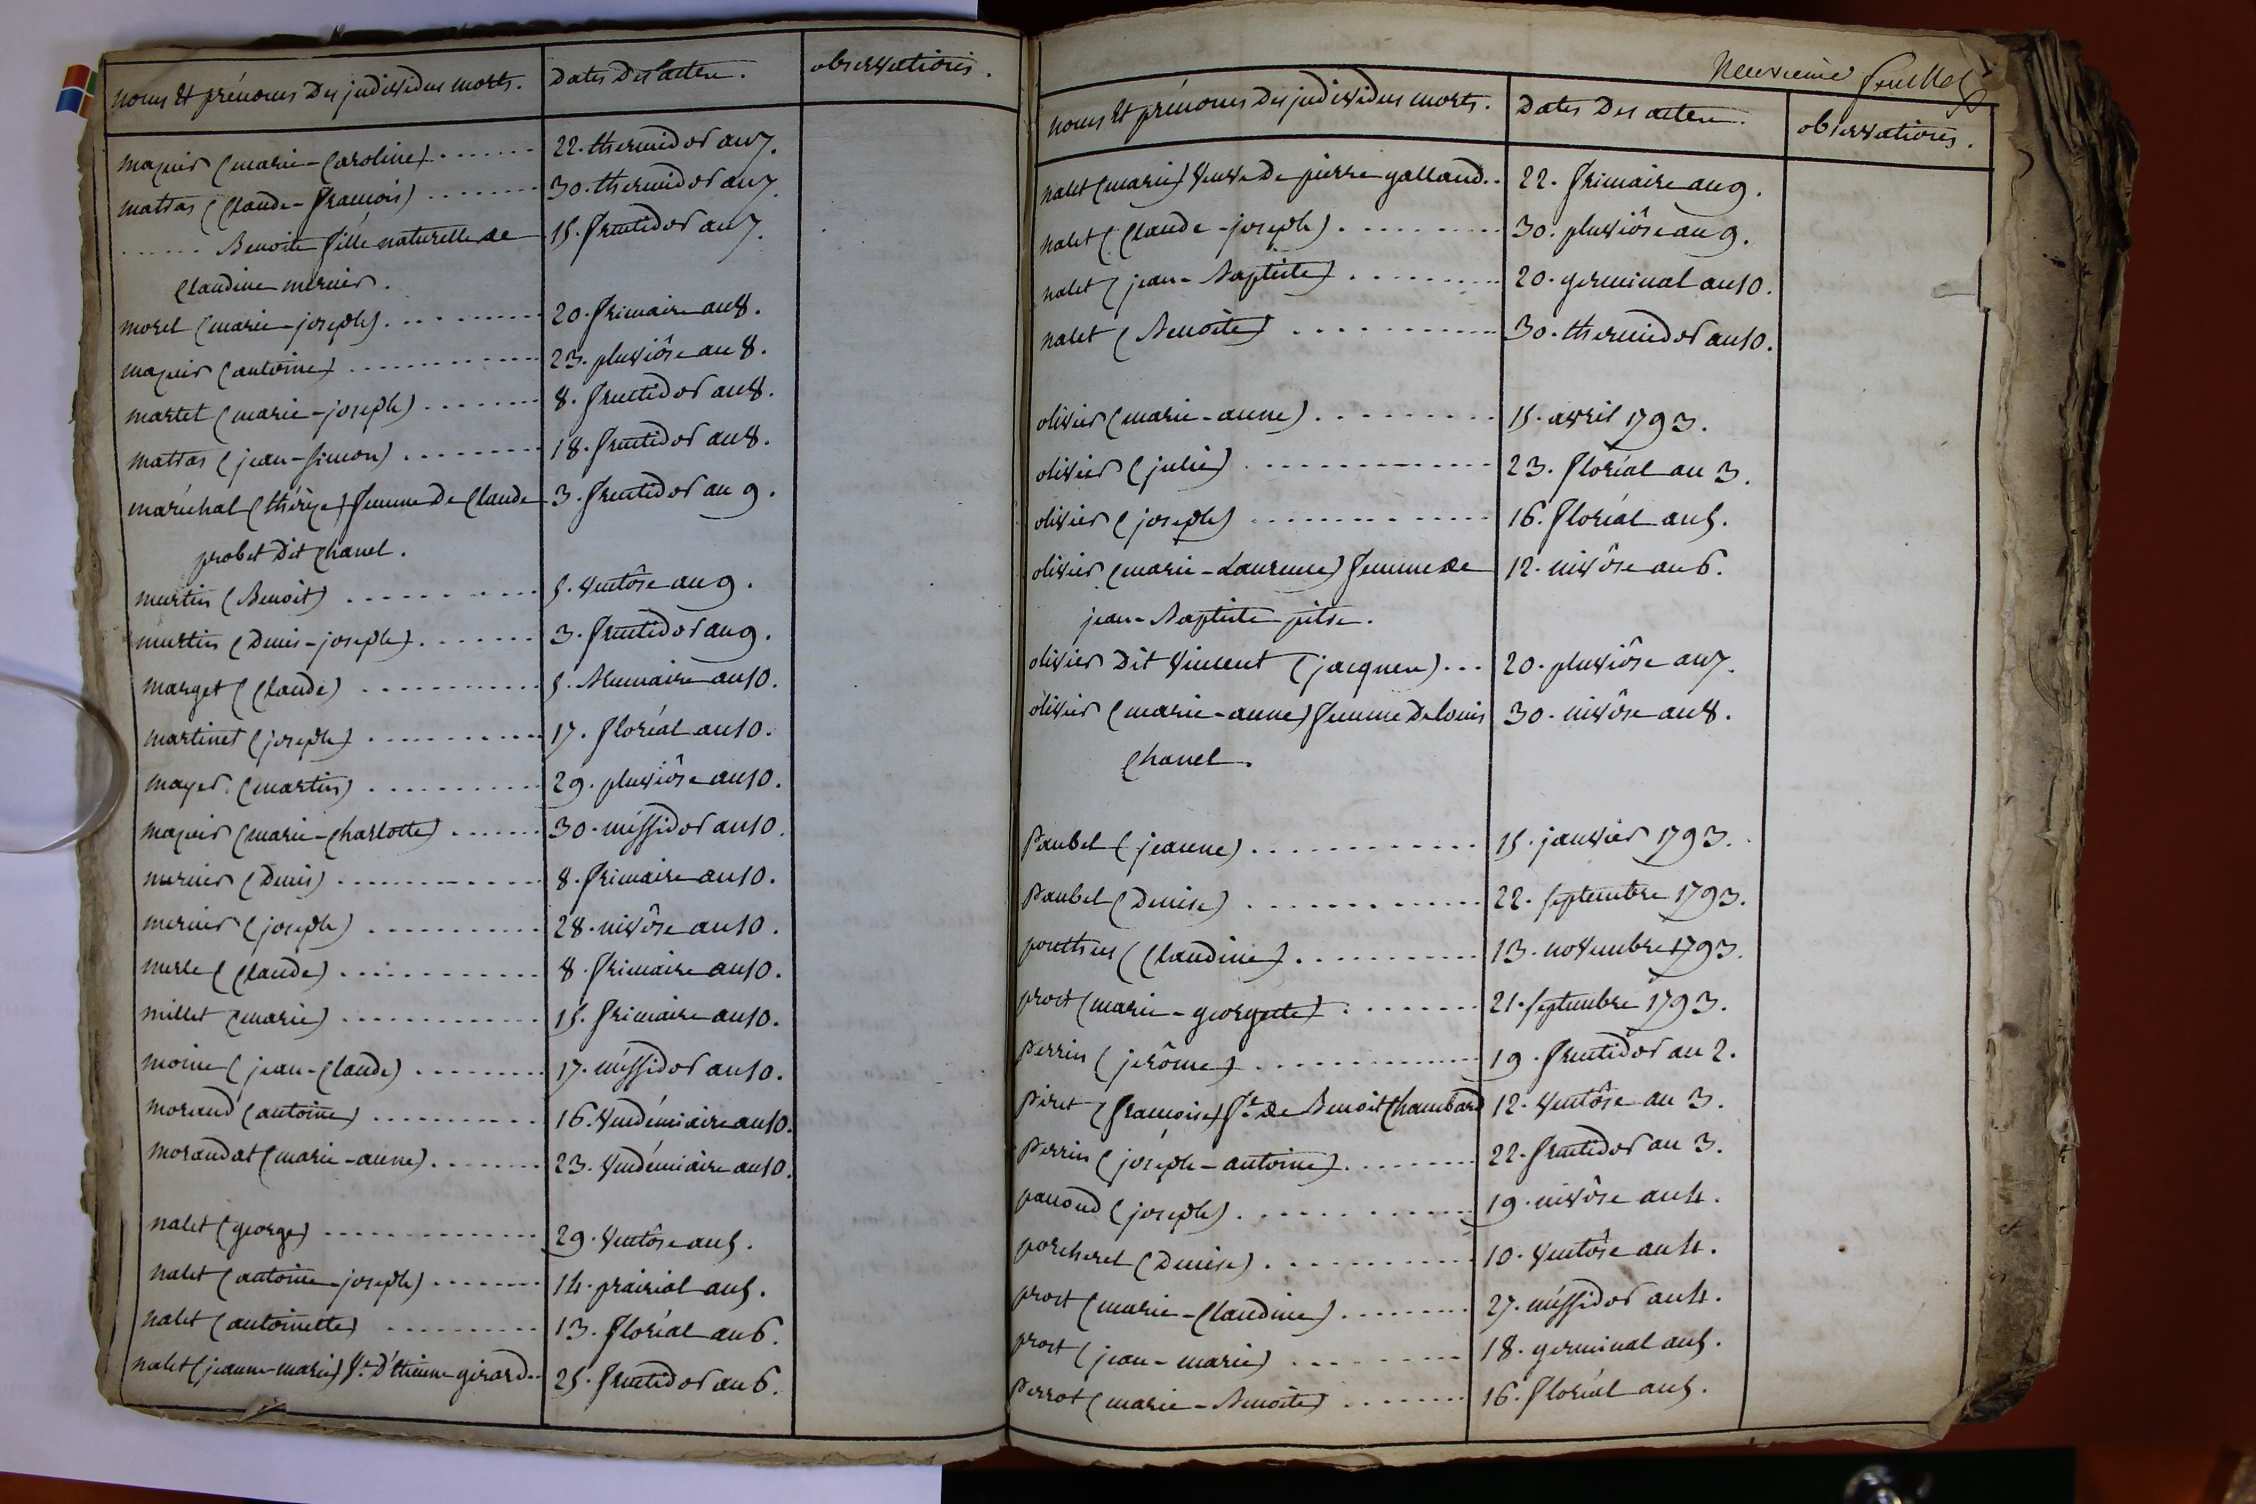 noms Et prénoms Des individus morts. Dates Des actes. observations.
mazuir (marie-Caroline) 22. thermidor an 7.
mattas (Claude-françois) 30. thermidor an 7.
Benoite fille naturelle de 15. fructidor an 7.
Claudine mercier.
morel (marie-joseph) 20. frimaire an 8.
mazuir (antoine) 23. pluviôse an 8.
martet (marie-joseph) 8. fructidor an 8.
mattas (jean-simon) 18. fructidor an 8.
maréchal (thérèse) femme De Claude 3. fructidor an 9.
probet Dit Chanel.
murtin (Benoit) 5. Ventôse an 9.
murtin (Denis-joseph) 3. fructidor an 9.
marget (Claude) 5. Brumaire an 10.
martinet (joseph) 17. floréal an 10.
mayer (martin) 29. pluviôse an 10.
mazuir (marie-Charlotte) 30. méssidor an 10.
mercier (Denis) 8. frimaire an 10.
mercier (joseph) 28. nivôse an 10.
merle (Claude) 8. frimaire an 10.
millet (marie) 15. frimaire an 10.
moine (jean-Claude) 17. méssidor an 10.
morand (antoine) 16. Vendémiaire an 10.
morandat (marie-anne) 23. Vendémiaire an 10.
nalet (george) 29. Ventôse an 5.
nalet (antoine-joseph) 14. prairial an 5.
nalet (antoinette) 13. floréal an 6.
nalet (jeanne-marie) Ve. D'étienne girard 25. fructidor an 6.
Neuvieme feuillet
noms Et prénoms Des individus morts. Dates Des actes. observations.
nalet (marie) Veuve De pierre galland 22. frimaire an 9.
nalet (Claude-joseph) 30. pluviôse an 9.
nalet (jean-Baptiste) 20. germinal an 10.
nalet (Benoite) 30. thermidor an 10.
olivier (marie-anne) 15. avril 1793.
olivier (julie) 23. floréal an 3.
olivier (joseph) 16. floréal an 5.
olivier (marie-Laurence) femme de 12. nivôse an 6.
jean-Baptiste pitre.
olivier Dit Vincent (jacques) 20. pluviôse an 7.
olivier (marie-anne) femme De louis 30. nivôse an 8.
Chanel.
Paubel (jeanne) 15. janvier 1793.
Paubel (Denise) 22. septembre 1793.
ponthus (Claudine) 13. novembre 1793.
prost (marie-georgette) 21. septembre 1793.
Perrin (jerôme) 19. fructidor an 2.
Piret (françoise) fe. de Benoit Chambard 12. Ventôse an 3.
Perrin (joséph-antoine) 22. fructidor an 3.
panoud (joseph) 19. nivôse an 4.
porcheret (Denise) 10. Ventôse an 4.
prost (marie-Claudine) 27. méssidor an 4.
prost (jean-marie) 18. germinal an 5.
Perrot (marie-Benoite) 16. floréal an 5.